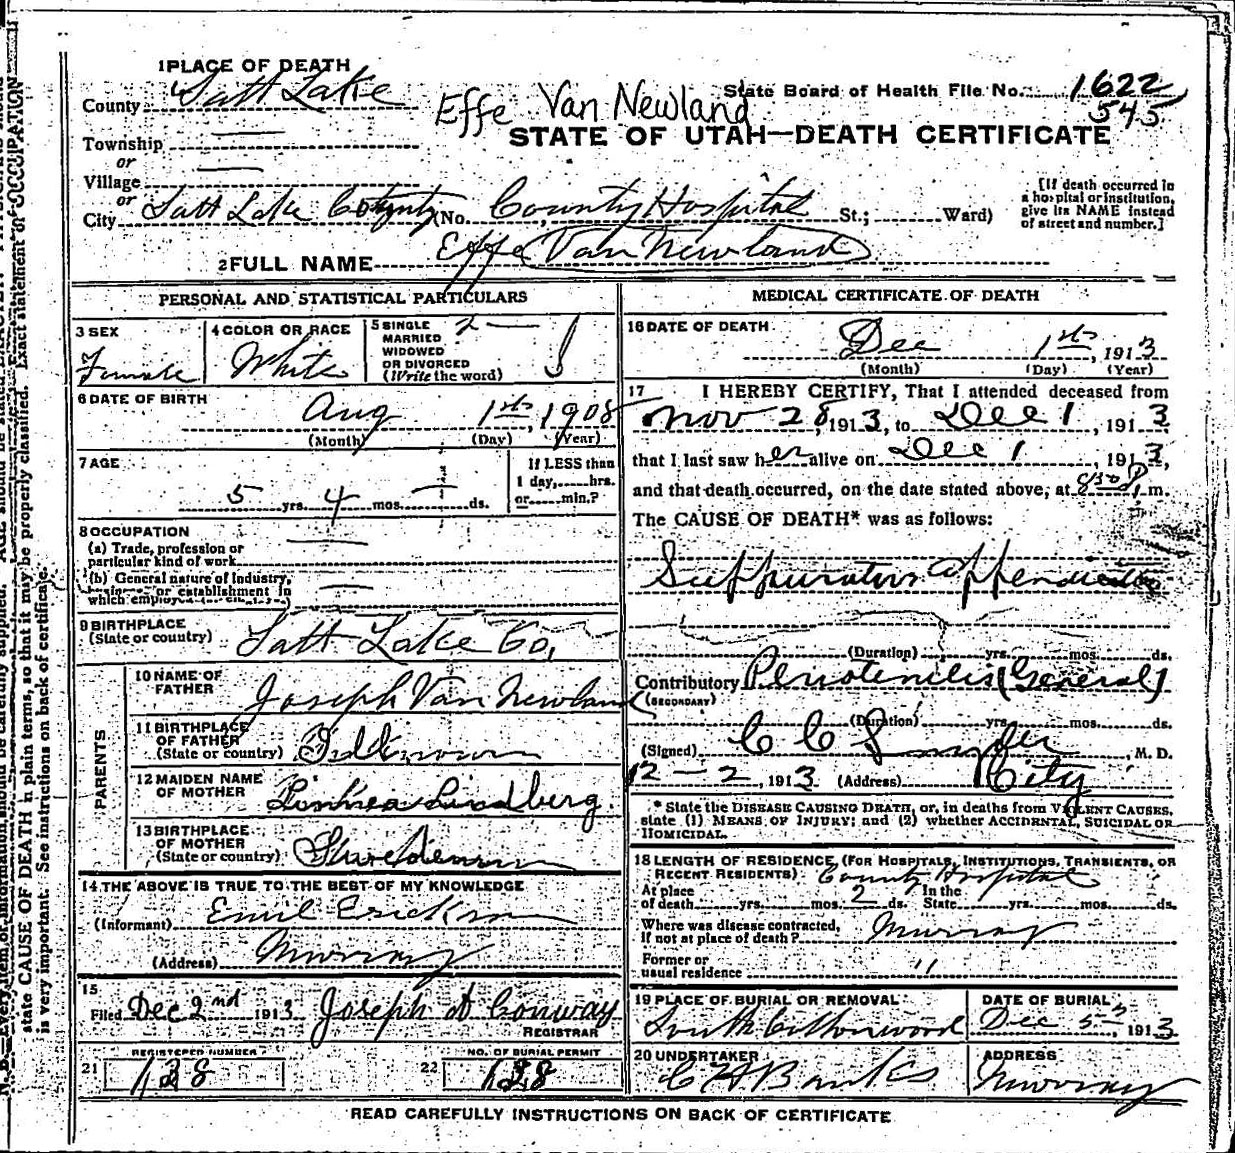 1 PLACE OF DEATH
County Salt Lake
Effe Van Newland
State Board of Health File No. 1622
545
STATE OF UTAH—DEATH CERTIFICATE
Township
or
Village
or
City Salt Lake County (No. County Hospital St.; Ward)
[If death occurred in a hospital or institution, give its NAME instead of street and number.]
2 FULL NAME Effe Van Newland
PERSONAL AND STATISTICAL PARTICULARS
3 SEX
Female
4 COLOR OR RACE
White
5 SINGLE
MARRIED
WIDOWED
OR DIVORCED
(Write the word)
2 — S
6 DATE OF BIRTH
Aug 1st, 1908
(Month) (Day) (Year)
7 AGE
5 yrs. 4 mos. — ds.
If LESS than
1 day, hrs.
or min.?
8 OCCUPATION
(a) Trade, profession or
particular kind of work
(b) General nature of industry,
business or establishment in
which employed
9 BIRTHPLACE
(State or country) Salt Lake Co.
PARENTS
10 NAME OF
FATHER Joseph Van Newland
11 BIRTHPLACE
OF FATHER
(State or country)
12 MAIDEN NAME
OF MOTHER Linhea Lindberg.
13 BIRTHPLACE
OF MOTHER
(State or country)
14 THE ABOVE IS TRUE TO THE BEST OF MY KNOWLEDGE
(Informant) Emil Erickson
(Address) Murray
15
Filed Dec 2nd 1913 Joseph A Conway
REGISTRAR
REGISTERED NUMBER
21 128
NO. OF BURIAL PERMIT
22 128
MEDICAL CERTIFICATE OF DEATH
16 DATE OF DEATH
Dec 1st, 1913
(Month) (Day) (Year)
17 I HEREBY CERTIFY, That I attended deceased from
Nov 28, 1913, to Dec 1, 1913,
that I last saw her alive on Dec 1, 1913,
and that death occurred, on the date stated above, at 8:30 P. m.
The CAUSE OF DEATH* was as follows:
Suppurative appendicitis
(Duration) yrs. mos. ds.
Contributory Periotenitis (General)
(SECONDARY)
(Duration) yrs. mos. ds.
(Signed) C C Snyder, M. D.
12—2, 1913 (Address) City
* State the DISEASE CAUSING DEATH, or, in deaths from VIOLENT CAUSES,
state (1) MEANS OF INJURY; and (2) whether ACCIDENTAL, SUICIDAL OR
HOMICIDAL.
18 LENGTH OF RESIDENCE, (FOR HOSPITALS, INSTITUTIONS, TRANSIENTS, OR
RECENT RESIDENTS) County Hospital
At place
of death yrs. mos. 2 ds. In the
State yrs. mos. ds.
Where was disease contracted,
if not at place of death? Murray
Former or
usual residence "
19 PLACE OF BURIAL OR REMOVAL
South Cottonwood
DATE OF BURIAL
Dec 5th, 1913
20 UNDERTAKER
C H Banks
ADDRESS
Murray
READ CAREFULLY INSTRUCTIONS ON BACK OF CERTIFICATE
state CAUSE OF DEATH in plain terms, so that it may be properly classified. Exact statement of OCCUPATION
is very important. See instructions on back of certificate.